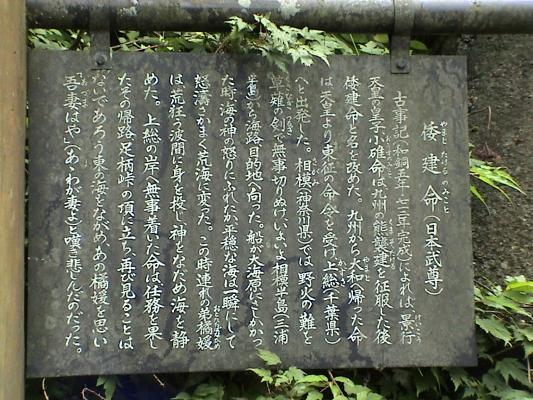 倭建命(日本武尊)
古事記(和銅五年・七一二年完成)によれば、景行
天皇の皇子小碓命は九州の熊襲建を征服した後
倭建命と名を改めた。九州から大和へ帰った命
は天皇より東征の命令を受け、上総(千葉県)
へと出発した。相模(神奈川県)では、野火の難を
草薙の剣で無事切りぬけ、いよいよ相模半島(三浦
半島)から海路目的地へ向った。船が大海原にさしかかっ
た時海の神の怒りにふれたか平穏な海は一瞬にして
怒濤さかまく荒海に変った。この時連れの弟橘媛
は荒狂う波間に身を投じ神をなだめ海を静
めた。上総の岸へ無事着いた命は任務を果し
たその帰路、足柄峠の頂に立ち、再び見ることは
ないであろう東の海をながめ、あの橘媛を思い
吾妻はや(あゝわが妻よ)と嘆き悲しんだのだった。